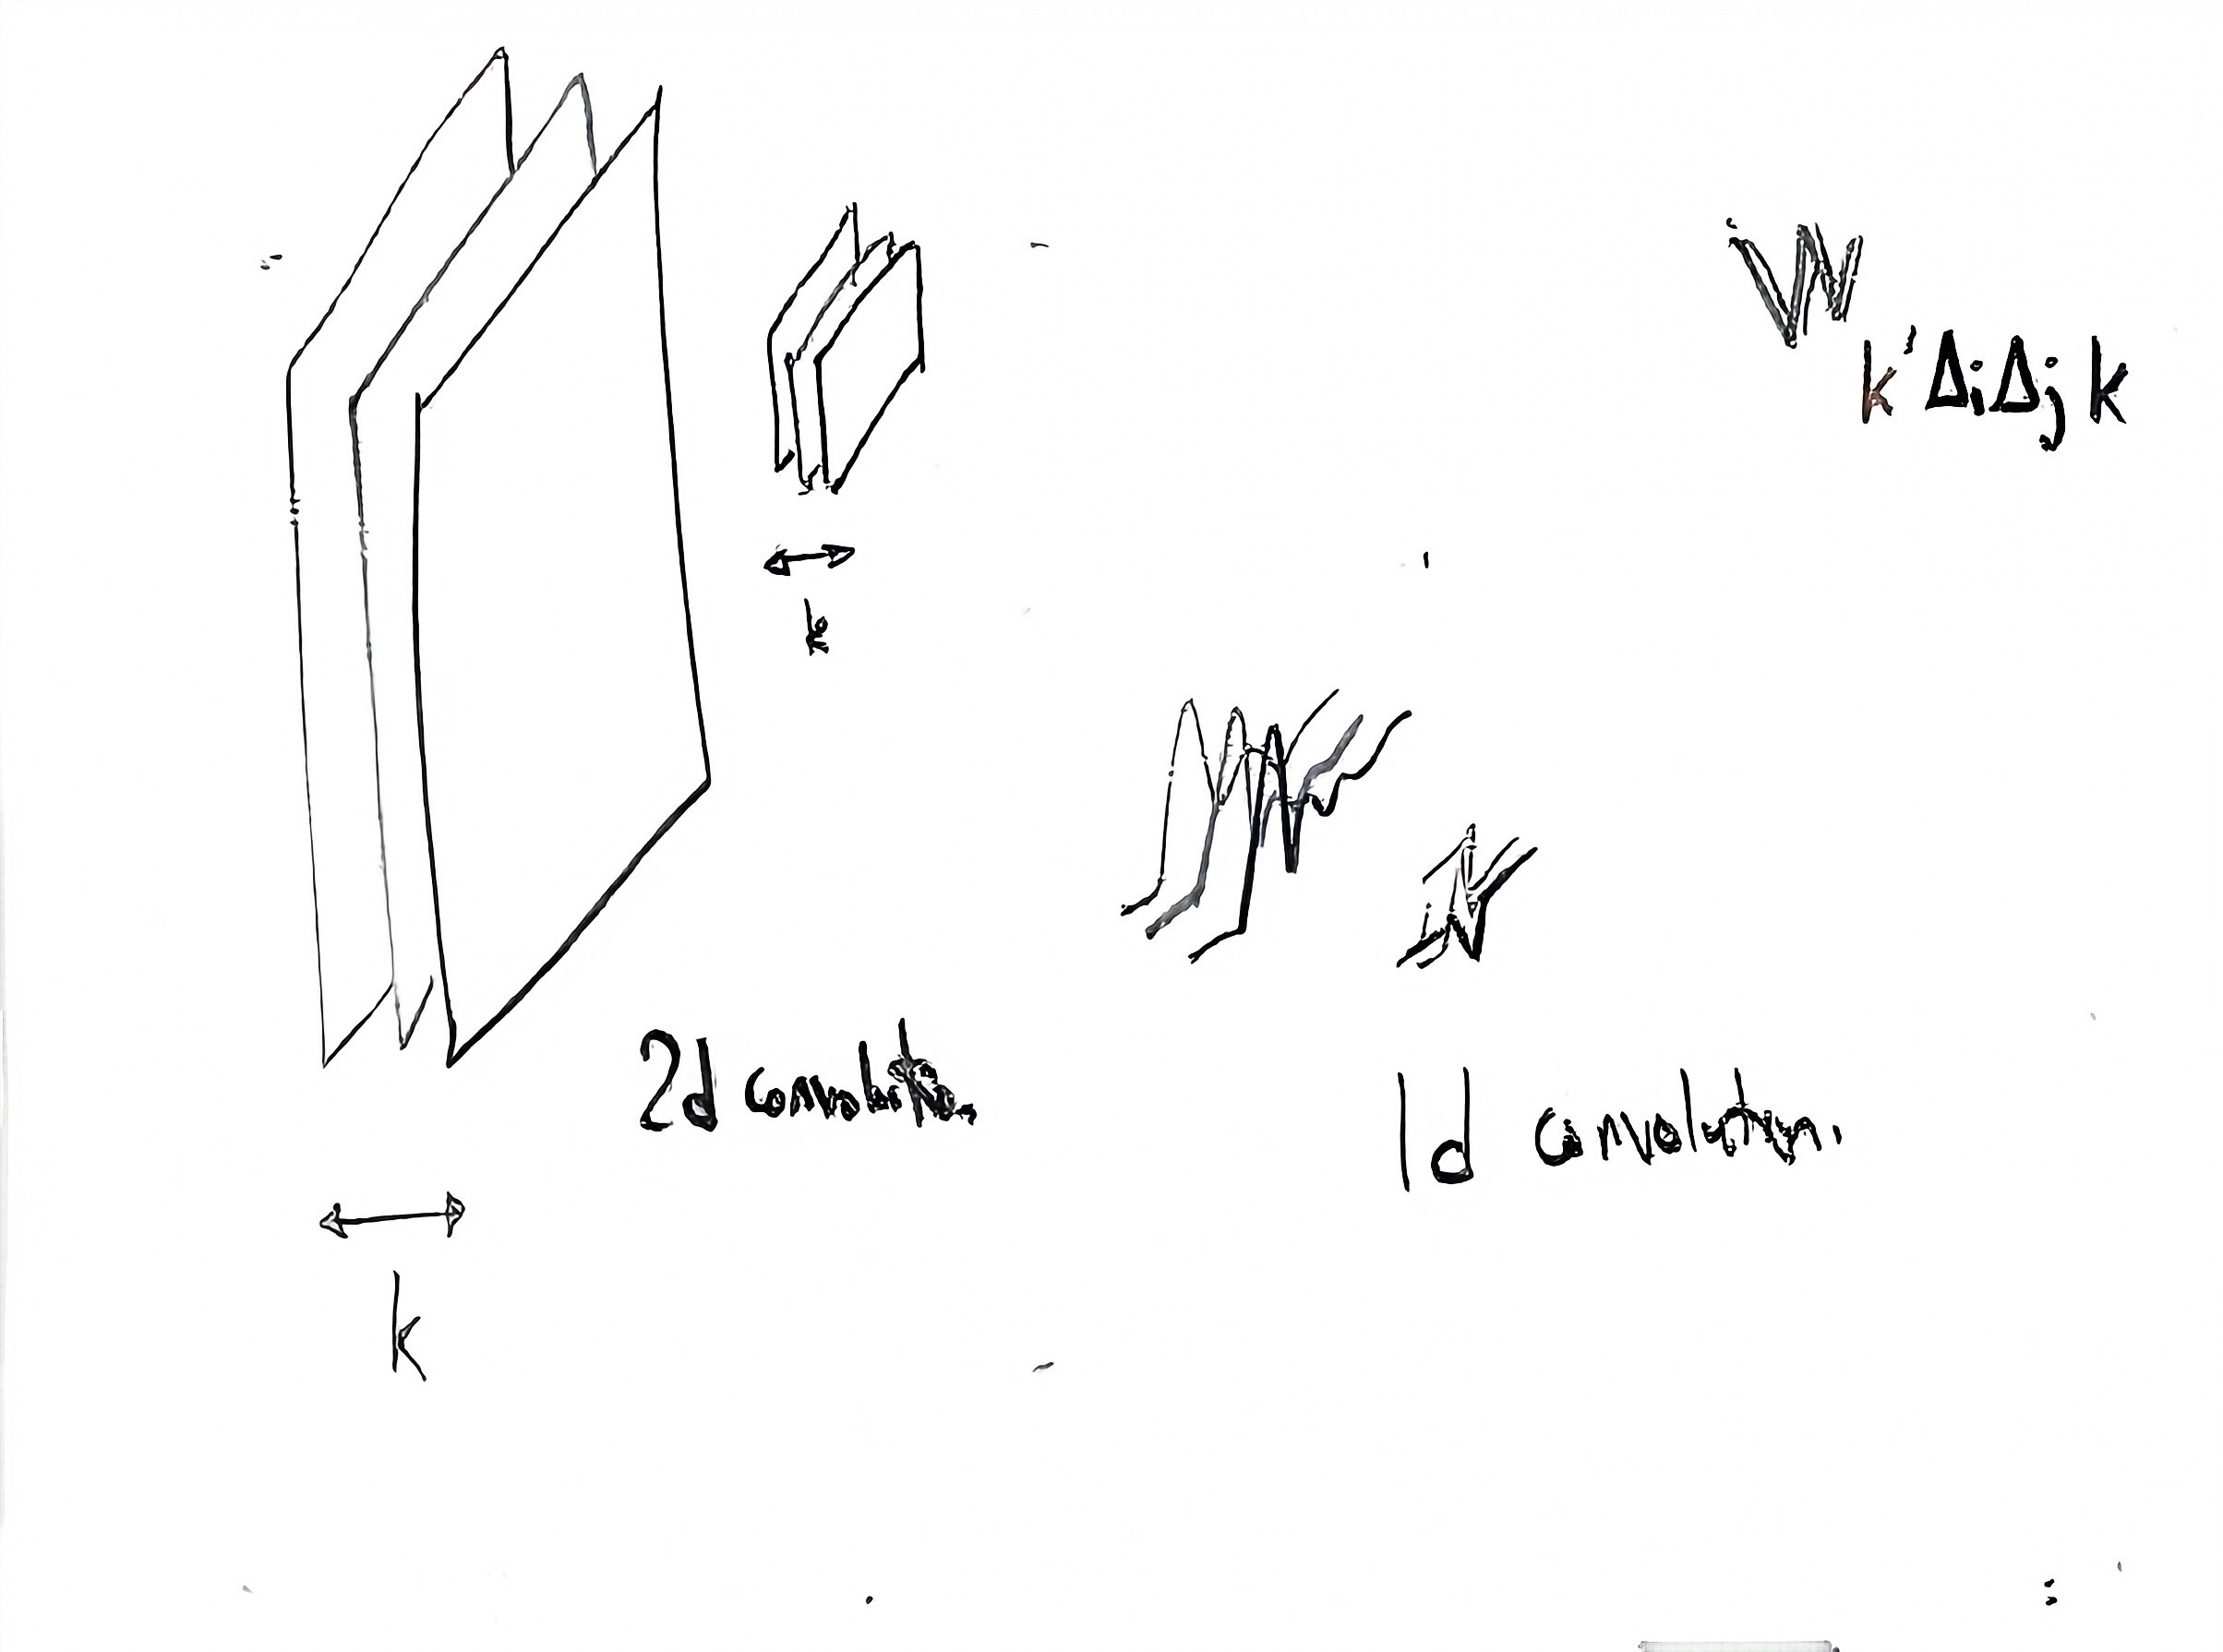 W k'ΔiΔj k
k
2d convolution
1d convolution.
k